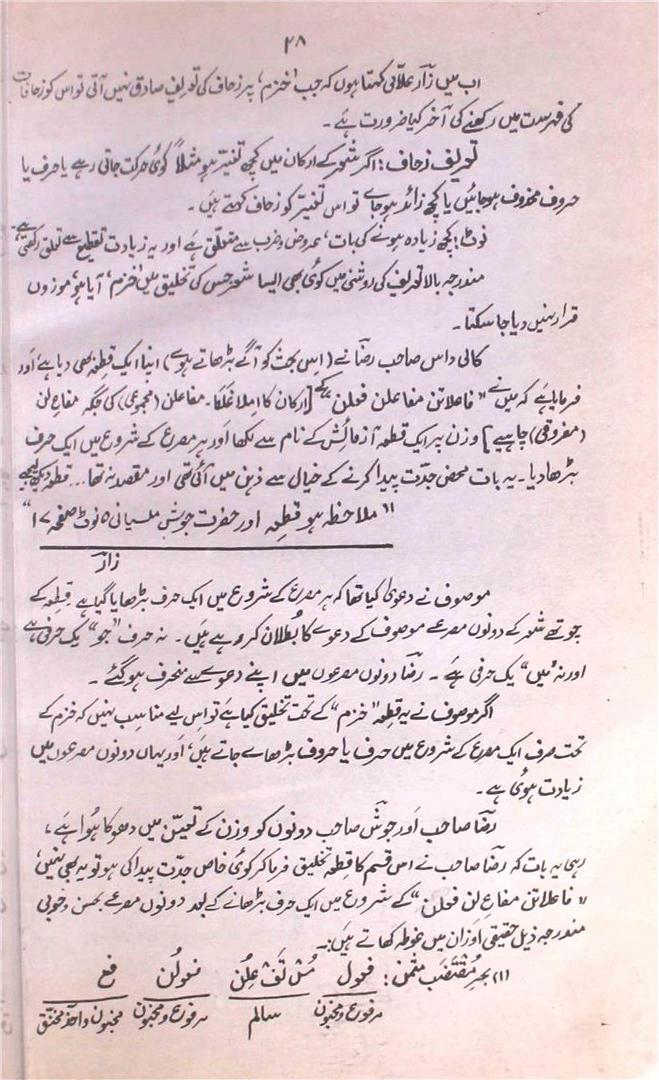 ۲۸
اب میں زآر علّامی کہتا ہوں کہ جب ’خزم‘ پر زحاف کی تعریف صادق نہیں آتی تو اس کو زحافات
کی فہرست میں رکھنے کی آخر کیا ضرورت ہے۔
تعریف زحاف: اگر شعر کے ارکان میں کچھ تغیّر ہو مثلاً کوئی حرکت جاتی رہے یا حرف یا
حروف محذوف ہو جائیں یا کچھ زائد ہو جاے تو اس تغیّر کو زحاف کہتے ہیں۔
نوٹ: کچھ زیادہ ہونے کی بات، عروض و ضرب سے متعلّق ہے اور یہ زیادت تقطیع سے تعلق رکھتی ہے،
مندرجہ بالا تعریف کی روشنی میں کوئی بھی ایسا شعر جس کی تخلیق میں ’خزم‘ آیا ہو، موزوں
قرار نہیں دیا جا سکتا۔
کالی داس صاحب رضآ نے (اِس بحث کو آگے بڑھاتے ہوے) اپنا ایک قطعہ بھی دیا ہے اور
فرمایا ہے کہ میں نے ”فاعلاتن مفاعلن فعلن“ کے [ارکان کا املا غلط۔ مفاعلن (مجموعی) کی جگہ مفاع لن
(مفروقی) چاہیے] وزن پر ایک قطعہ آزمائش کے نام سے لکھا اور ہر مصرع کے شروع میں ایک حرف
بڑھا دیا۔ یہ بات محض جدّت پیدا کرنے کے خیال سے ذہن میں آئی تھی اور مقصد نہ تھا... قطعہ دیکھیے
”ملاحظہ ہو قطعہ اور حضرت جوشؔ ملسیانی ۵ نوٹ صفحہ ۱۷“
زار
موصوف نے دعویٰ کیا تھا کہ ہر مصرع کے شروع میں ایک حرف بڑھایا گیا ہے قطعہ کے
چوتھے شعر کے دونوں مصرعے موصوف کے دعوے کا بُطلان کر رہے ہیں۔ نہ حرف ”جو“ یک حرفی ہے
اور نہ ”میں“ یک حرفی ہے۔ رضآ دونوں مصرعوں میں اپنے دعوے سے منحرف ہو گئے۔
اگر موصوف نے یہ قطعہ ”خزم“ کے تحت تخلیق کیا ہے تو اس لیے مناسب نہیں کہ خزم کے
تحت صرف ایک مصرع کے شروع میں حرف یا حروف بڑھاے جاتے ہیں، اور یہاں دونوں مصرعوں میں
زیادت ہوئی ہے۔
رضآ صاحب اور جوشؔ صاحب دونوں کو وزن کے تعیّن میں دھوکا ہوا ہے،
رہی یہ بات کہ رضآ صاحب نے اس قسم کا قطعہ تخلیق فرما کر کوئی خاص جدّت پیدا کی ہو تو یہ بھی نہیں،
”فاعلاتن مفاع لن فعلن“ کے شروع میں ایک حرف بڑھانے کے بعد دونوں مصرعے بحسن و خوبی
مندرجہ ذیل حقیقی اوزان میں غوطہ کھاتے ہیں:۔
(۱) بحرِ مُقتَضَب مثمّن: فعول مُس تَف عِلُن فعولُن فع
مرفوع و مخبون سالم مرفوع و مخبون مخبون و احذ مخنّق